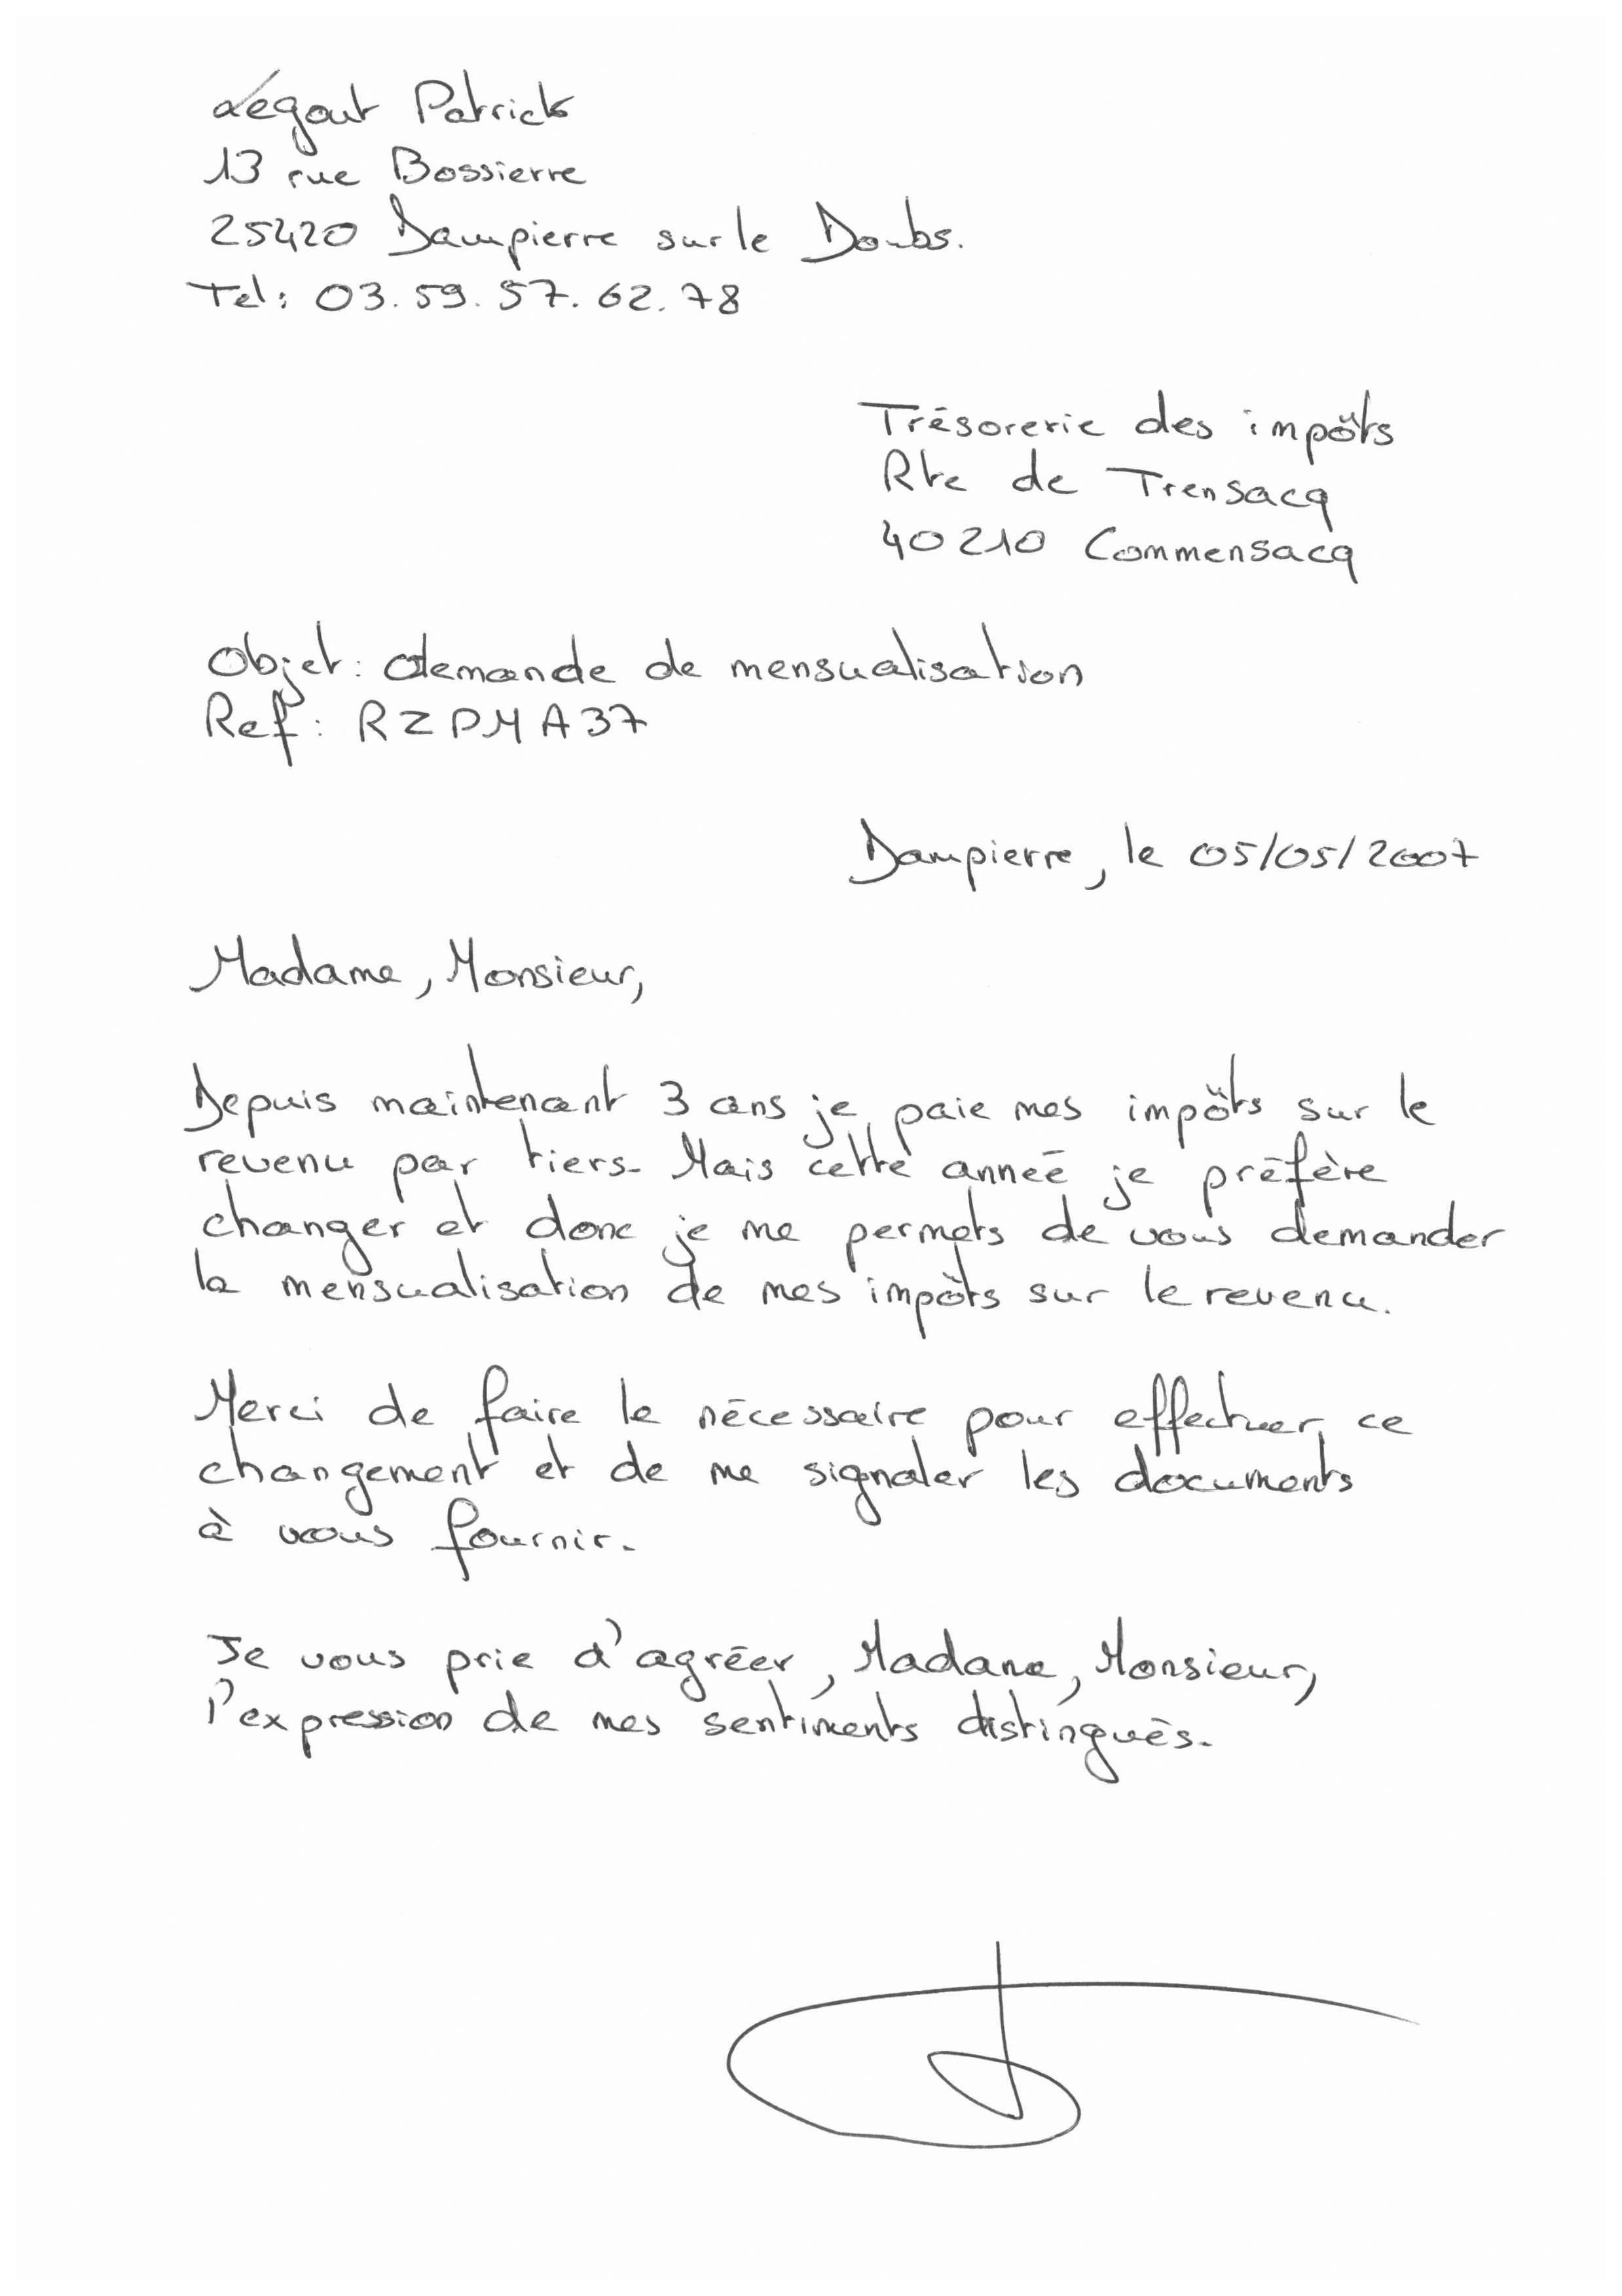 Legout Patrick
13 rue Bossierre
25420 Dampierre sur le Doubs.
Tel: 03.59.57.62.78
Trésorerie des impôts
Rte de Trensacq
40210 Commensacq
Objet: demande de mensualisation
Ref: RZPMA37
Dampierre, le 05/05/2007
Madame, Monsieur,
Depuis maintenant 3 ans je paie mes impôts sur le
revenu par tiers. Mais cette année je préfère
changer et donc je me permets de vous demander
la mensualisation de mes impôts sur le revenu.
Merci de faire le nécessaire pour effectuer ce
changement et de me signaler les documents
à vous fournir.
Je vous prie d'agréer, Madame, Monsieur,
l'expression de mes sentiments distingués.